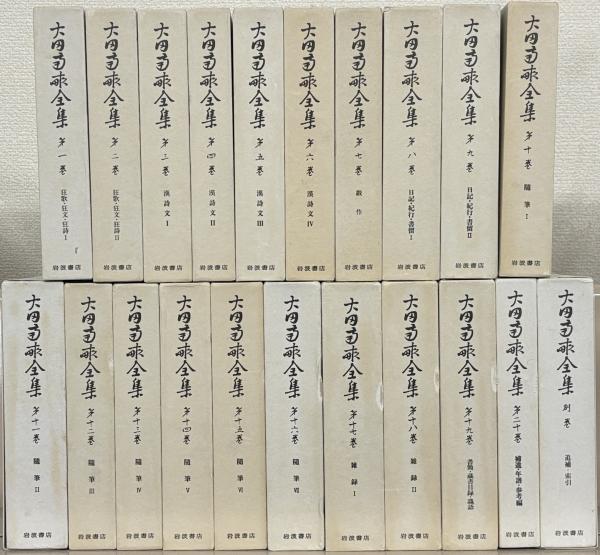 大田南畝全集 第一巻 狂歌・狂文・狂詩Ⅰ 岩波書店
大田南畝全集 第二巻 狂歌・狂文・狂詩Ⅱ 岩波書店
大田南畝全集 第三巻 漢詩文Ⅰ 岩波書店
大田南畝全集 第四巻 漢詩文Ⅱ 岩波書店
大田南畝全集 第五巻 漢詩文Ⅲ 岩波書店
大田南畝全集 第六巻 漢詩文Ⅳ 岩波書店
大田南畝全集 第七巻 戯作 岩波書店
大田南畝全集 第八巻 日記・紀行・書留Ⅰ 岩波書店
大田南畝全集 第九巻 日記・紀行・書留Ⅱ 岩波書店
大田南畝全集 第十巻 随筆Ⅰ 岩波書店
大田南畝全集 第十一巻 随筆Ⅱ 岩波書店
大田南畝全集 第十二巻 随筆Ⅲ 岩波書店
大田南畝全集 第十三巻 随筆Ⅳ 岩波書店
大田南畝全集 第十四巻 随筆Ⅴ 岩波書店
大田南畝全集 第十五巻 随筆Ⅵ 岩波書店
大田南畝全集 第十六巻 随筆Ⅶ 岩波書店
大田南畝全集 第十七巻 雑録Ⅰ 岩波書店
大田南畝全集 第十八巻 雑録Ⅱ 岩波書店
大田南畝全集 第十九巻 書簡・蔵書目録・識語 岩波書店
大田南畝全集 第二十巻 補遺・年譜・参考編 岩波書店
大田南畝全集 別巻 追補・索引 岩波書店